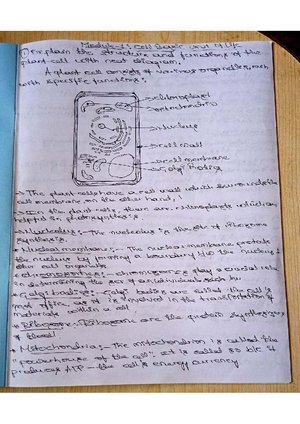 Module-1: cell basic unit of life
1) Explain the structure and functions of the
plant cell with neat diagram.
A plant cell consists of various organelles, each
with specific functions.
chloroplast
mitochondria
nucleus
cell wall
cell membrane
Golgi bodies
→ The plant cells have a cell wall which surrounds the
cell membrane on the other hand,
→ In the plant cells there are chloroplasts which are
helpful in photosynthesis.
* Nucleolus:- The nucleolus is the site of ribosome
synthesis.
* Nuclear membrane:- The nuclear membrane protects
the nucleus by forming a boundary b/w the nucleus &
other cell organelles
* Chromosomes:- chromosomes play a crucial role
in determining the sex of an individual
* Golgi bodies:- Golgi bodies are called the cell's
post office, as it is involved in the transportation of
materials within a cell
* Ribosome:- Ribosome are the protein synthesizers
of the cell
* Mitochondria:- The mitochondrion is called the
"powerhouse of the cell". It is called so b/c it
produces ATP - the cell's energy currency